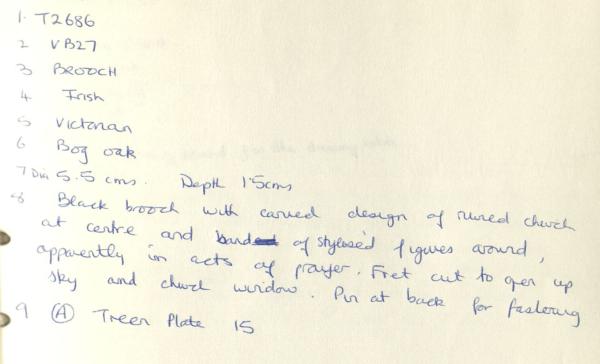 1. T2686
2 VB27
3 BROOCH
4 Irish
5 Victorian
6 Bog oak
7 Dia 5.5 cms. Depth 1.5cms
8 Black brooch with carved design of ruined church
at centre and band of stylised figures around,
apparently in acts of prayer. Fret cut to open up
sky and church window. Pin at back for fastening
9 (A) Treen Plate 15